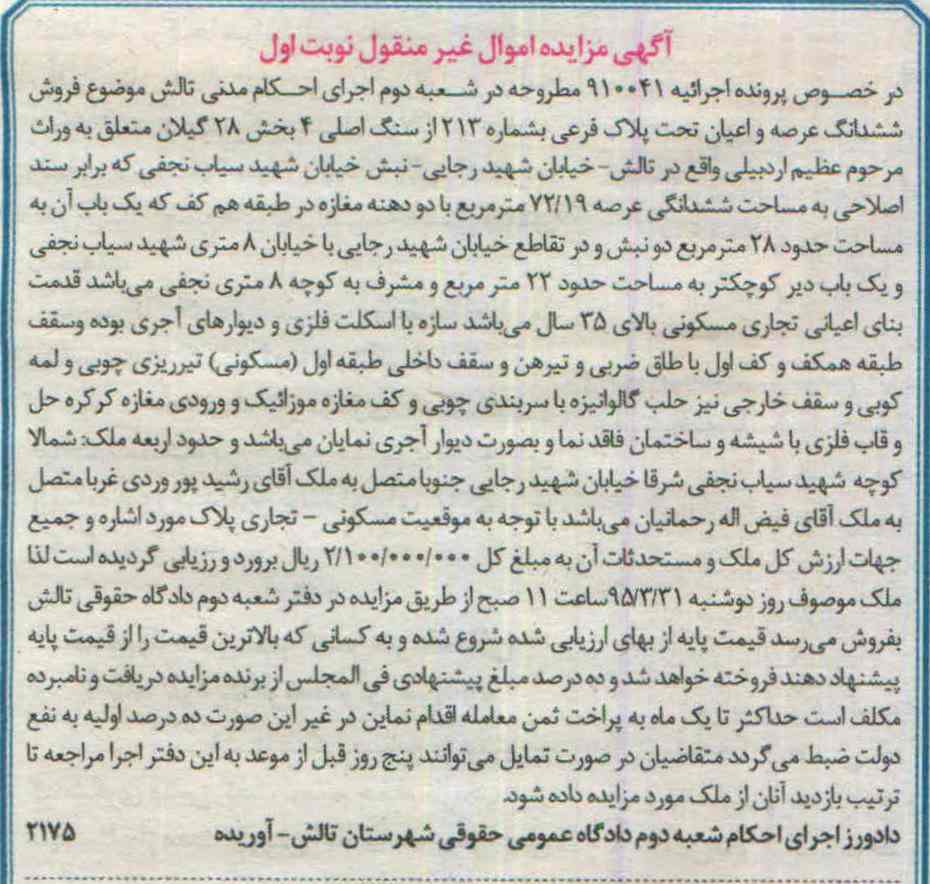 آگهی مزایده اموال غیر منقول نوبت اول
در خصوص پرونده اجرائیه ۹۱۰۰۴۱ مطروحه در شعبه دوم اجرای احکام مدنی تالش موضوع فروش
ششدانگ عرصه و اعیان تحت پلاک فرعی بشماره ۲۱۳ از سنگ اصلی ۴ بخش ۲۸ گیلان متعلق به وراث
مرحوم عظیم اردبیلی واقع در تالش- خیابان شهید رجایی- نبش خیابان شهید سیاب نجفی که برابر سند
اصلاحی به مساحت ششدانگی عرصه ۷۲/۱۹ مترمربع با دو دهنه مغازه در طبقه هم کف که یک باب آن به
مساحت حدود ۲۸ مترمربع دو نبش و در تقاطع خیابان شهید رجایی با خیابان ۸ متری شهید سیاب نجفی
و یک باب دیر کوچکتر به مساحت حدود ۲۲ متر مربع و مشرف به کوچه ۸ متری نجفی می‌باشد قدمت
بنای اعیانی تجاری مسکونی بالای ۳۵ سال می‌باشد سازه با اسکلت فلزی و دیوارهای آجری بوده وسقف
طبقه همکف و کف اول با طاق ضربی و تیرهن و سقف داخلی طبقه اول (مسکونی) تیرریزی چوبی و لمه
کوبی و سقف خارجی نیز حلب گالوانیزه با سربندی چوبی و کف مغازه موزائیک و ورودی مغازه کرکره حل
و قاب فلزی با شیشه و ساختمان فاقد نما و بصورت دیوار آجری نمایان می‌باشد و حدود اربعه ملک: شمالا
کوچه شهید سیاب نجفی شرقا خیابان شهید رجایی جنوبا متصل به ملک آقای رشید پور وردی غربا متصل
به ملک آقای فیض اله رحمانیان می‌باشد با توجه به موقعیت مسکونی – تجاری پلاک مورد اشاره و جمیع
جهات ارزش کل ملک و مستحدثات آن به مبلغ کل ۲/۱۰۰/۰۰۰/۰۰۰ ریال برورد و رزیابی گردیده است لذا
ملک موصوف روز دوشنبه ۹۵/۳/۳۱ساعت ۱۱ صبح از طریق مزایده در دفتر شعبه دوم دادگاه حقوقی تالش
بفروش می‌رسد قیمت پایه از بهای ارزیابی شده شروع شده و به کسانی که بالاترین قیمت را از قیمت پایه
پیشنهاد دهند فروخته خواهد شد و ده درصد مبلغ پیشنهادی فی المجلس از برنده مزایده دریافت و نامبرده
مکلف است حداکثر تا یک ماه به پراخت ثمن معامله اقدام نماین در غیر این صورت ده درصد اولیه به نفع
دولت ضبط می‌گردد متقاضیان در صورت تمایل می‌توانند پنج روز قبل از موعد به این دفتر اجرا مراجعه تا
ترتیب بازدید آنان از ملک مورد مزایده داده شود.
دادورز اجرای احکام شعبه دوم دادگاه عمومی حقوقی شهرستان تالش- آوریده ۲۱۷۵